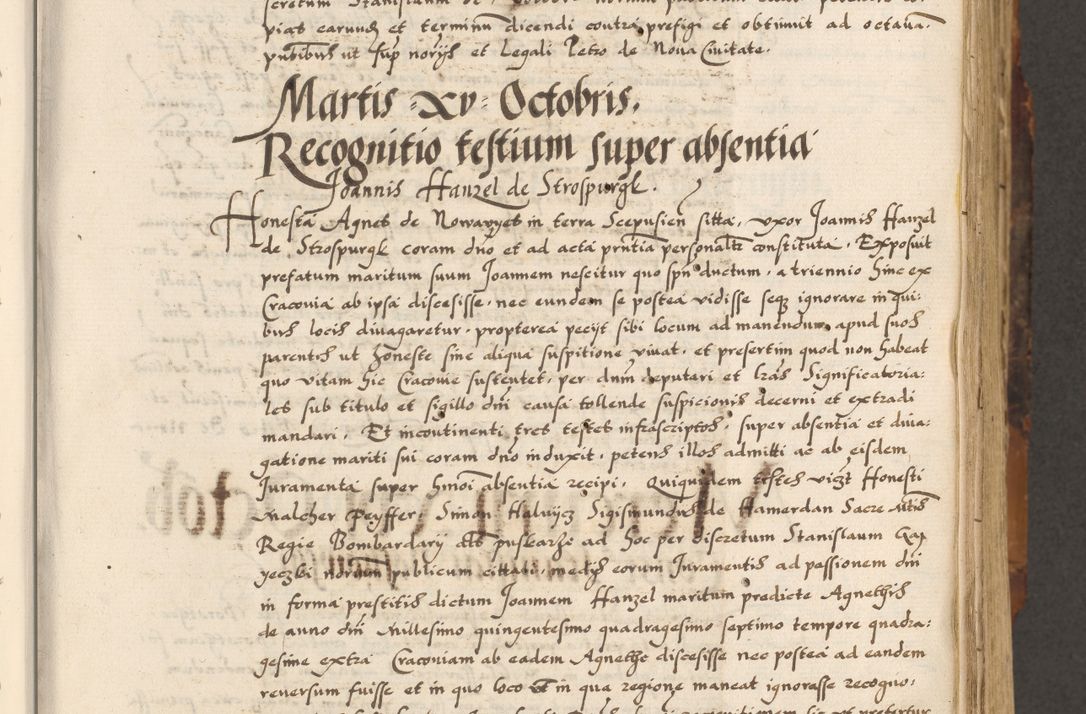 piat earundem et terminum dicendi contra prefigi et obtinuit ad octava.
putibus ut sup norijs et Legali Petro de Nova Civitate.
Martis · xv · Octobris.
Recognitio testium super absentia
Joannis Hanzel de Strospurgk.
Honesta Agnes de in terra Scepusien sitta, uxor Joannis Hanzel
de Strospurgk coram dno et ad acta pntia personaltr constituta. Exposuit
prefatum maritum suum Joannem nescitur quo spu ductum, a triennio hinc ex
Cracovia ab ipsa discesisse, nec eundem se postea vidisse seqz ignorare in qui:
bus locis divagaretur. propterea pecijt sibi locum ad manendum, apud suos
parentes ut honeste sine aliqua suspitione vivat. et presertim quod non habeat
quo vitam hic Cracovie sustentet, per dnm deputari et lras Significatoria:
les sub titulo et sigillo dni causa tollende suspicionis decerni et extradi
mandari. Et incontinenti tres testes infrascriptos, super absentia et diva:
gatione mariti sui coram dno induxit, petens illos admitti ac ab eisdem
Juramenta super hmoi absentia recipi. Quiquidem testes vizt Honesti
Malcher Peyffer, Simon Sigismundus de Hamerdan Sacre Mtis
Regie Bombardarij als puskarze ad hoc per discretum Stanislaum
norium publicum cittati, medijs eorum Juramentis ad passionem dni
in forma prestitis dictum Joannem Hanzel maritum predicte Agnethis
de anno dni Millesimo quingentesimo quadragesimo septimo tempore quadra:
gesime extra Cracoviam ab eadem Agnethe discesisse nec postea ad eandem
reversum fuisse et in quo loco et in qua regione maneat ignorasse recogno: